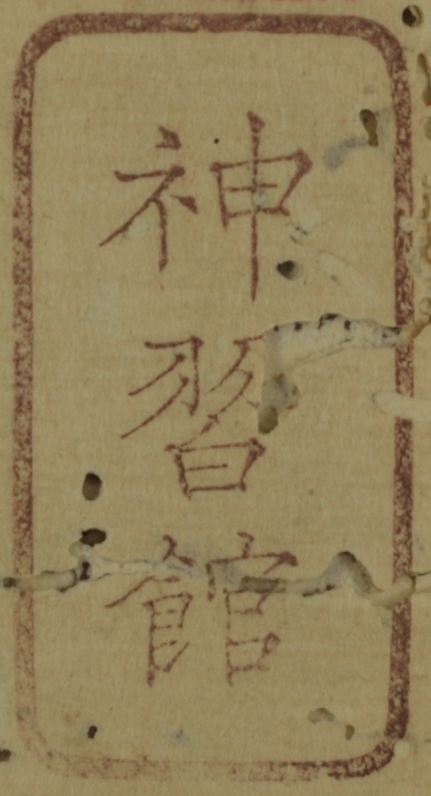 神習館